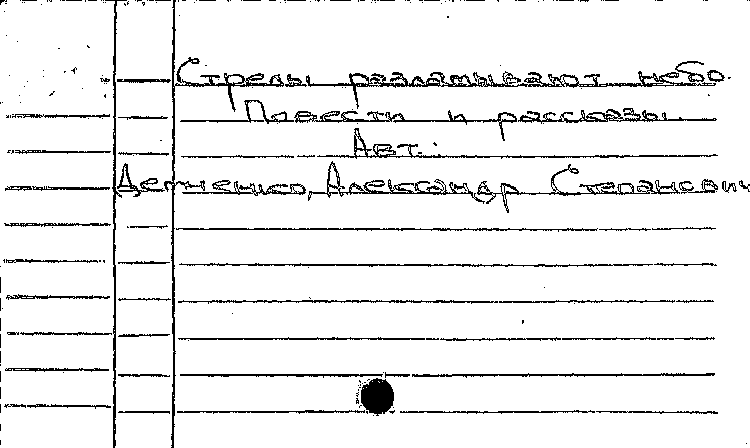 Стрелы разламывают небо.
Повести и рассказы.
Авт.:
Демченко, Александр Степанович